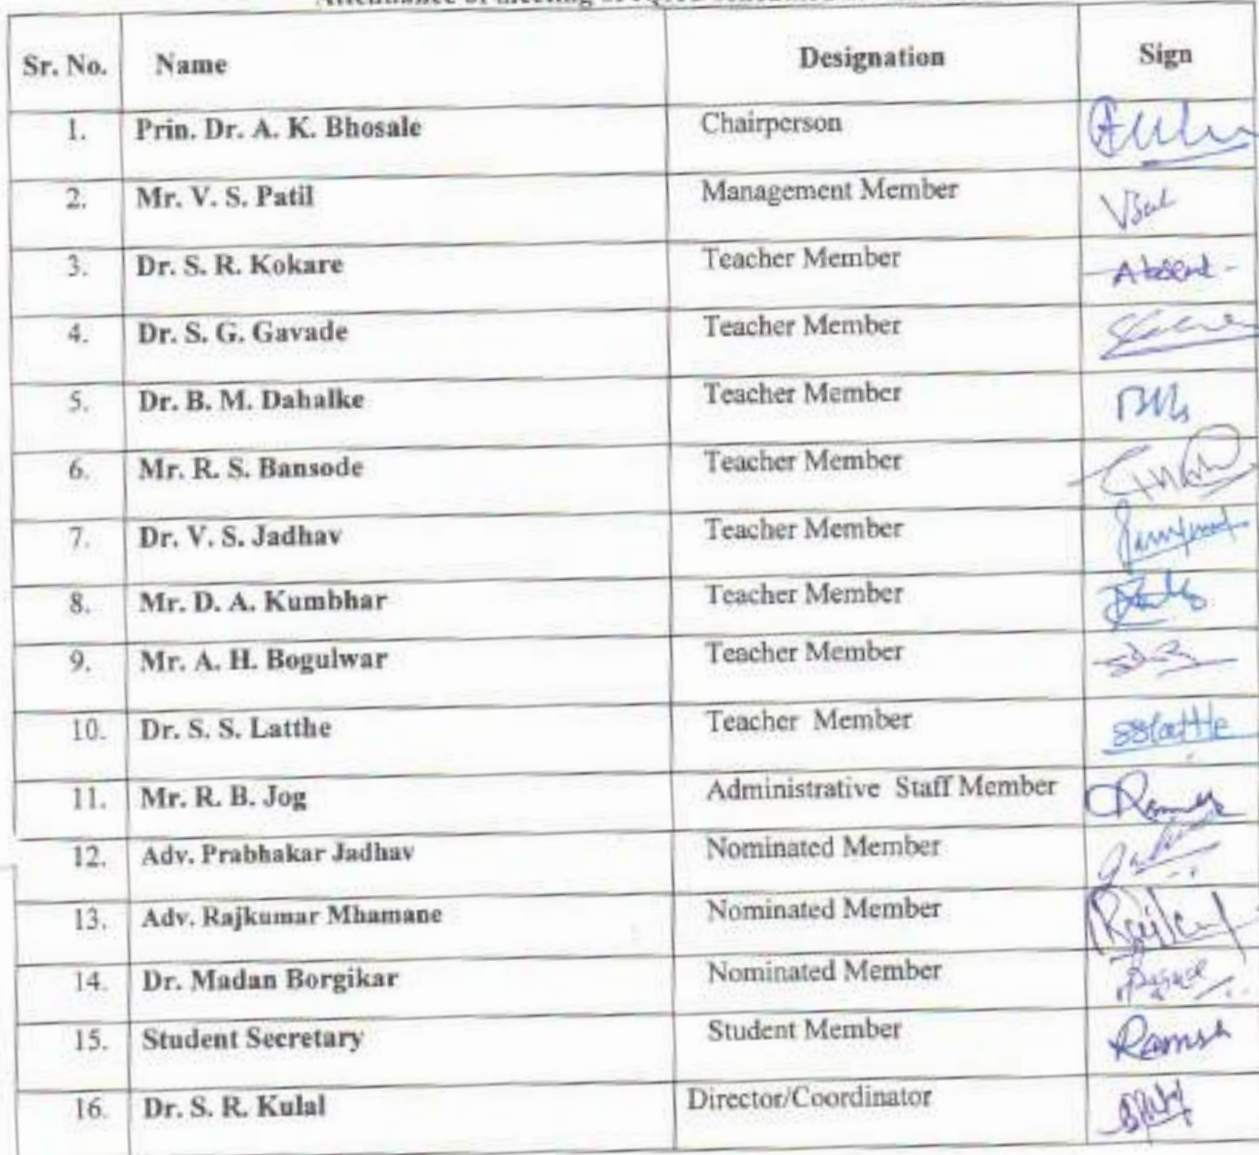 Attendance of meeting of IQAC
Sr. No. Name Designation Sign
1. Prin. Dr. A. K. Bhosale Chairperson
2. Mr. V. S. Patil Management Member
3. Dr. S. R. Kokare Teacher Member -Absent-
4. Dr. S. G. Gavade Teacher Member
5. Dr. B. M. Dahalke Teacher Member
6. Mr. R. S. Bansode Teacher Member
7. Dr. V. S. Jadhav Teacher Member
8. Mr. D. A. Kumbhar Teacher Member
9. Mr. A. H. Bogulwar Teacher Member
10. Dr. S. S. Latthe Teacher Member sslatthe
11. Mr. R. B. Jog Administrative Staff Member
12. Adv. Prabhakar Jadhav Nominated Member
13. Adv. Rajkumar Mhamane Nominated Member
14. Dr. Madan Borgikar Nominated Member
15. Student Secretary Student Member
16. Dr. S. R. Kulal Director/Coordinator